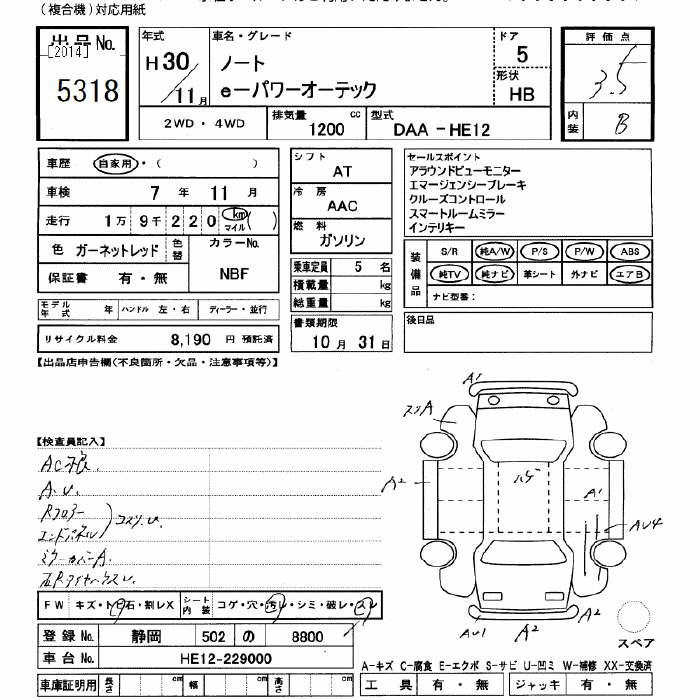 (複合機)対応用紙
出品No.
[2014]
5318
年式
H30/11月
車名・グレード
ノート
e-パワーオーテック
ドア
5
形状
HB
評価点
3.5
内装
B
2WD・4WD
排気量
1200 cc
型式
DAA -HE12
車歴 自家用・( )
車検 7年 11月
走行 1万 9千 2 2 0 km マイル ( )
色 ガーネットレッド
色替
カラーNo.
NBF
保証書 有・無
モデル年式 年 ハンドル 左・右 ディーラー・並行
リサイクル料金 8,190 円 預託済
シフト
AT
冷房
AAC
燃料
ガソリン
乗車定員 5 名
積載量 kg
総重量 kg
書類期限
10月 31日
セールスポイント
アラウンドビューモニター
エマージェンシーブレーキ
クルーズコントロール
スマートルームミラー
インテリキー
装備品
S/R 純A/W P/S P/W ABS
純TV 純ナビ 革シート 外ナビ エアB
ナビ型番:
後日品
【出品店申告欄(不良箇所・欠品・注意事項等)】
【検査員記入】
A.U.
コスリU.
ミラーカバーA.
FW キズ・トビ石・割レX
シート内装 コゲ・穴・汚レ・シミ・破レ・スレ
登録No. 静岡 502 の 8800
車台No. HE12-229000
車庫証明用 長さ cm 幅 cm 高さ cm
A1
スリA
A2
ハゲ
A1
AU4
AU1
A2
A2
スペア
A-キズ C-腐食 E-エクボ S-サビ U-凹ミ W-補修 XX-交換済
工具 有・無 ジャッキ 有・無